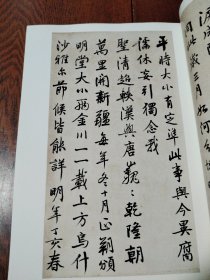 三月如何
平時大小有定準此事與今異腐
儒休妄引獨念我
聖清超軼漢與唐巍巍乾隆朝
萬里開新疆每年冬十月正朔頒
明堂大小兩金川一一載上方烏什
沙雅爾節候皆能詳明年丁亥春